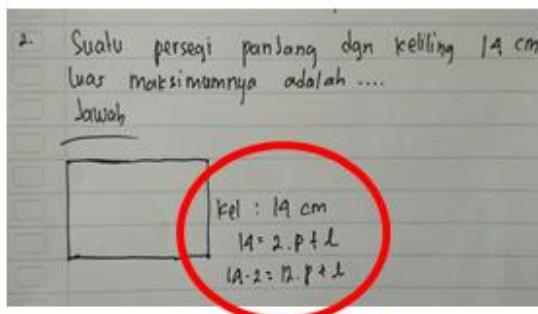 2. Suatu persegi panjang dgn keliling 14 cm
luas maksimumnya adalah ....
Jawab
Kel : 14 cm
14 = 2.p + l
14-2 = 12.p + l